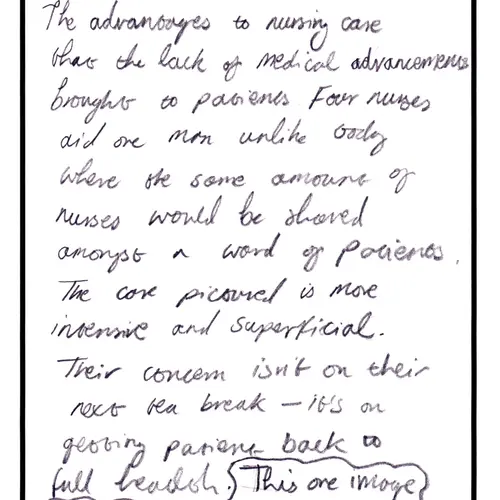 The advantages to nursing care
that the lack of medical advancements
brought to patients. Four nurses
aid one man unlike today
where the same amount of
nurses would be shared
amongst a ward of patients.
The care pictured is more
intensive and superficial.
Their concern isn't on their
next tea break – it's on
getting patient back to
full health. This one image